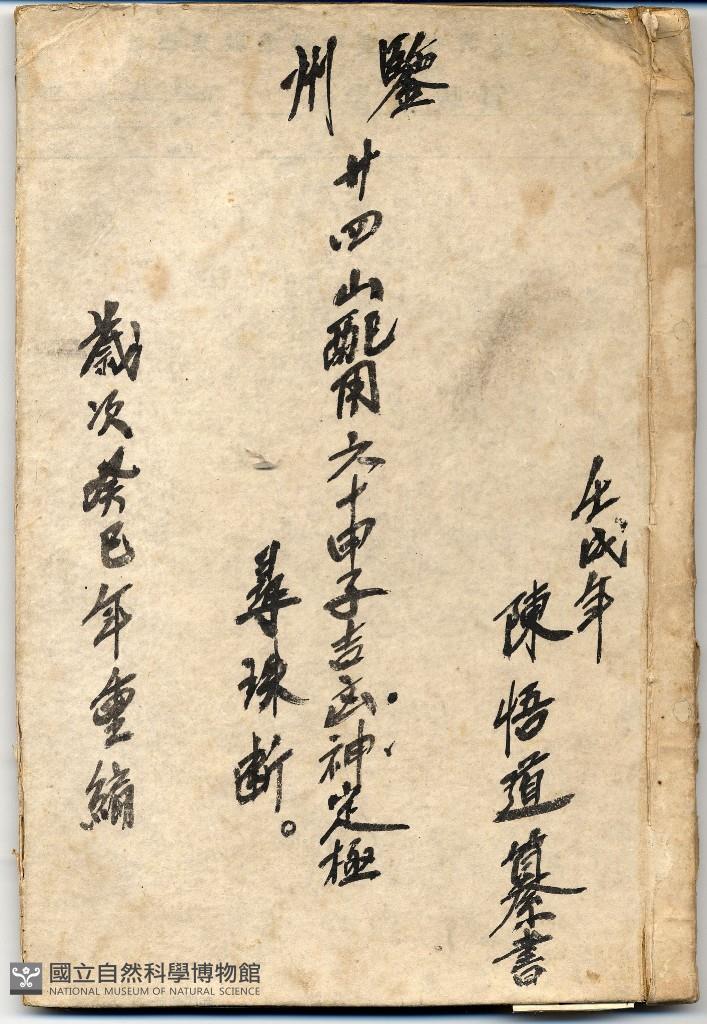 壬戌年
陳悟道纂書
鑒州
廿四山配用六十甲子吉凶神定極
尋珠斷。
歲次癸巳年重編
國立自然科學博物館
NATIONAL MUSEUM OF NATURAL SCIENCE